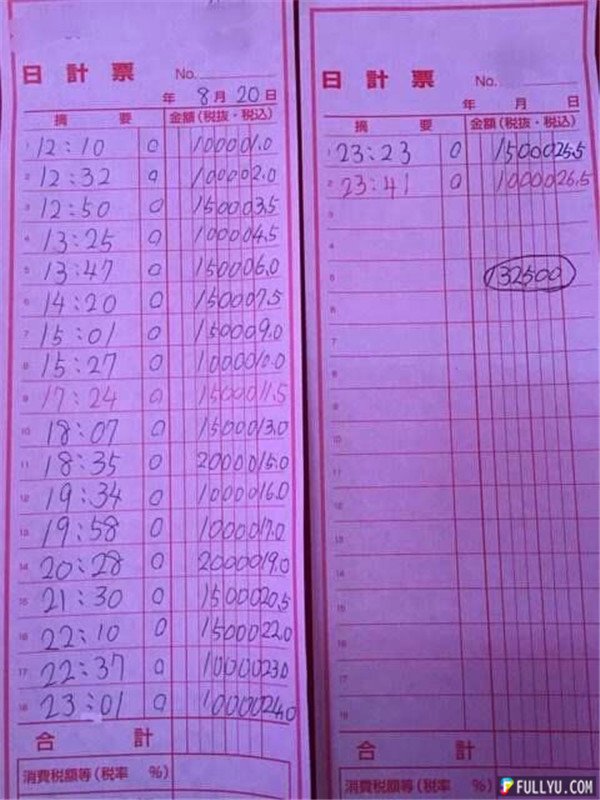 日計票
No.
年 8月 20日
摘 要 金額(税抜・税込)
1 12:10 0 10000 1.0
2 12:32 0 10000 2.0
3 12:50 0 15000 3.5
4 13:25 0 10000 4.5
5 13:47 0 15000 6.0
6 14:20 0 15000 7.5
7 15:01 0 15000 9.0
8 15:27 0 10000 10.0
9 17:24 0 15000 11.5
10 18:07 0 15000 13.0
11 18:35 0 20000 15.0
12 19:34 0 10000 16.0
13 19:58 0 10000 17.0
14 20:28 0 20000 19.0
15 21:30 0 15000 20.5
16 22:10 0 15000 22.0
17 22:37 0 10000 23.0
18 23:01 0 10000 24.0
合 計
消費税額等(税率 %)
日計票
No.
年 月 日
摘 要 金額(税抜・税込)
1 23:23 0 15000 25.5
2 23:41 0 10000 26.5
3
4
5 132500
6
7
8
9
10
11
12
13
14
15
16
17
18
合 計
消費税額等(税率 %)
FULLYU.COM